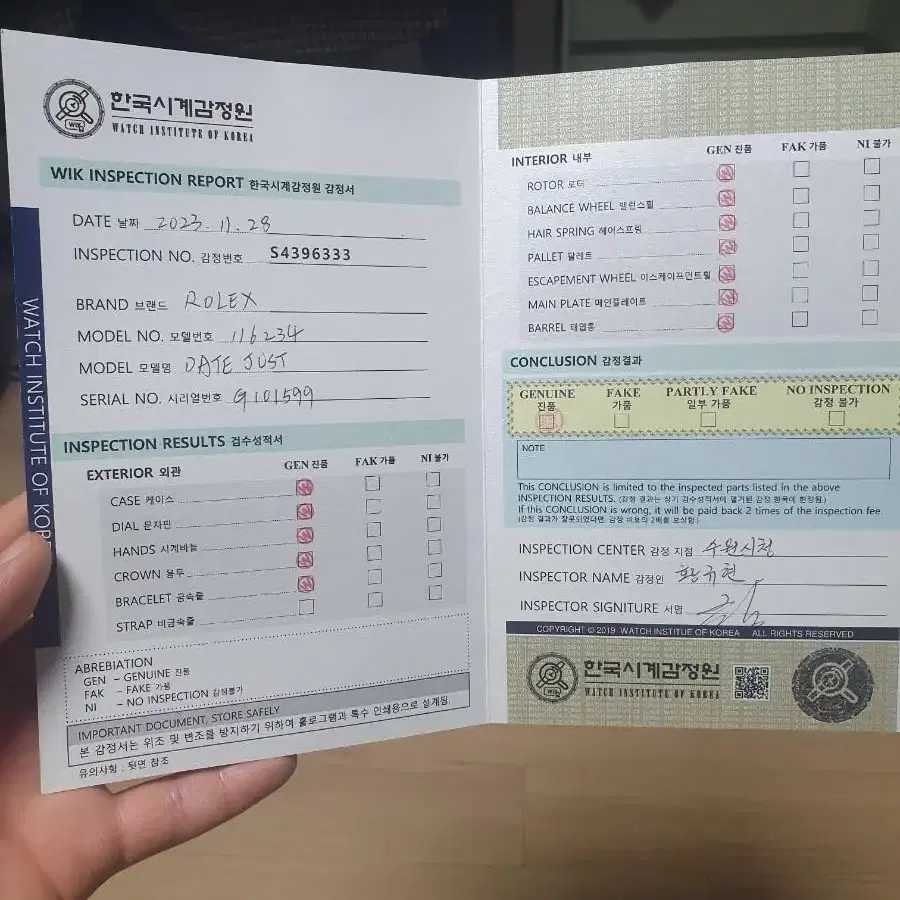 한국시계감정원
WATCH INSTITUTE OF KOREA
WIK INSPECTION REPORT 한국시계감정원 감정서
DATE 날짜 2023. 11. 28
INSPECTION NO. 감정번호 S4396333
BRAND 브랜드 ROLEX
MODEL NO. 모델번호 116234
MODEL 모델명 DATE JUST
SERIAL NO. 시리얼번호 G101599
INSPECTION RESULTS 검수성적서
EXTERIOR 외관 GEN 진품 FAK 가품 NI 불가
CASE 케이스
DIAL 문자판
HANDS 시계바늘
CROWN 용두
BRACELET 금속줄
STRAP 비금속줄
ABREBIATION
GEN – GENUINE 진품
FAK – FAKE 가품
NI – NO INSPECTION 감정불가
IMPORTANT DOCUMENT, STORE SAFELY
본 감정서는 위조 및 변조를 방지하기 위하여 홀로그램과 특수 인쇄용으로 설계됨.
유의사항 : 뒷면 참조
WATCH INSTITUTE OF KOR
INTERIOR 내부 GEN 진품 FAK 가품 NI 불가
ROTOR 로터
BALANCE WHEEL 밸런스휠
HAIR SPRING 헤어스프링
PALLET 팔레트
ESCAPEMENT WHEEL 이스케이프먼트휠
MAIN PLATE 메인플레이트
BARREL 태엽통
CONCLUSION 감정결과
GENUINE FAKE PARTLY FAKE NO INSPECTION
진품 가품 일부 가품 감정 불가
NOTE
This CONCLUSION is limited to the inspected parts listed in the above
INSPECTION RESULTS. (감정 결과는 상기 검수성적서에 열거된 감정 항목에 한정됨.)
If this CONCLUSION is wrong, it will be paid back 2 times of the inspection fee.
(감정 결과가 잘못되었다면, 감정 비용의 2배를 보상함.)
INSPECTION CENTER 감정 지점 수원시청
INSPECTOR NAME 감정인 황규현
INSPECTOR SIGNITURE 서명
COPYRIGHT © 2019 WATCH INSTITUE OF KOREA ALL RIGHTS RESERVED
한국시계감정원
WATCH INSTITUTE OF KOREA